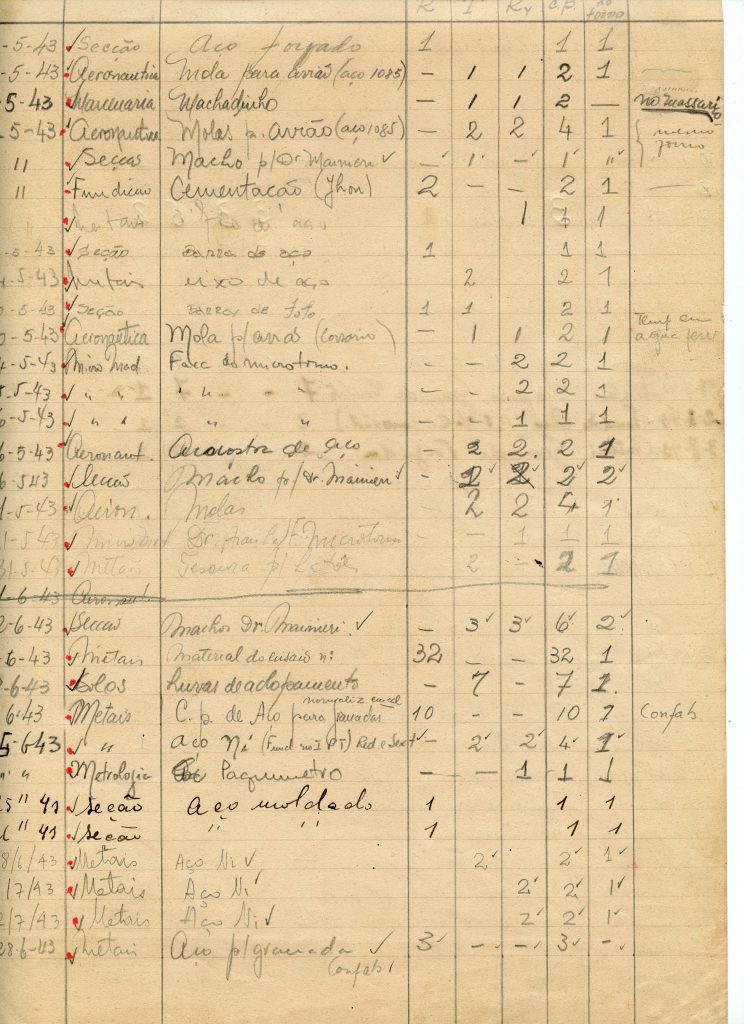 R I Rv C.P. no forno
-5-43 Secção Aço forjado 1 1 1
-5-43 Aeronautica Mola para avião (aço 1085) - 1 1 2 1
-5-43 Machadinho - 1 1 2 - no massari
-5-43 Aeronautica Molas p. avião (aço 1085) - 2 2 4 1 mesmo forno
" Secção Macho p/ Dr. Mainieri - 1 - 1 "
" Fundicão Cementacão (Jhon) 2 - - 2 1
Metais aço 1 1 1
-5-43 Seção Barra de aço 1 1 1
-5-43 Metais eixo de aço 2 2 1
-5-43 Seção Barra de FoFo 1 1 2 1
0-5-43 Aeronautica Mola p/ avião - 1 1 2 1 Temp. em agua ferv
4-5-43 Micro Mad. Faca do microtomo. - - 2 2 1
-5-43 " " " " " - - 2 2 1
6-5-43 " " " " - - 1 1 1
6-5-43 Aeronaut. de aço - 2 2 2 1
6-543 Secção Macho p/ Dr. Mainieri - 2 2 2 2
1-5-43 Aeron. Molas - 2 2 4 1
1-5-43 Dr. Microtomo - - 1 1 1
31-5-43 Metais Tesoura p/ 2 - 2 1
1-6-43 Aeronaut
2-6-43 Secção Machos Dr. Mainieri - 3 3 6 2
-6-43 Metais Material do ensaio n: 32 - - 32 1
2-6-43 Solos Luvas de aclopamento - 7 - 7 1
6-43 Metais C. p. de Aço para granadas 10 - - 10 1 Confab
5-643 " aço Ni (Fund. no I P T) Red. e Sext - 2 2 4 1
" " Metrologia Paquimetro - - 1 1 1
25 " 41 Secção Aço moldado 1 1 1
" 41 Secão " " 1 1 1
8/6/43 Metais Aço Ni 2 2 1
/7/43 Metais Aço Ni 2 2 1
2/7/43 Metais Aço Ni 2 2 1
28-6-43 Metais Aço p/ granada 3 - - 3 -
Confab